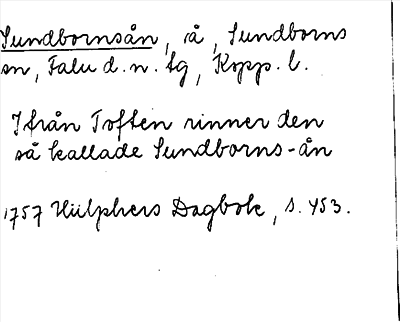 Sundbornsån, å, Sundborns
sn, Falu d. n. tg, Kopp. l.
Ifrån Toften rinner den
så kallade Sundborns-ån
1757 Hülphers Dagbok, s. 453.